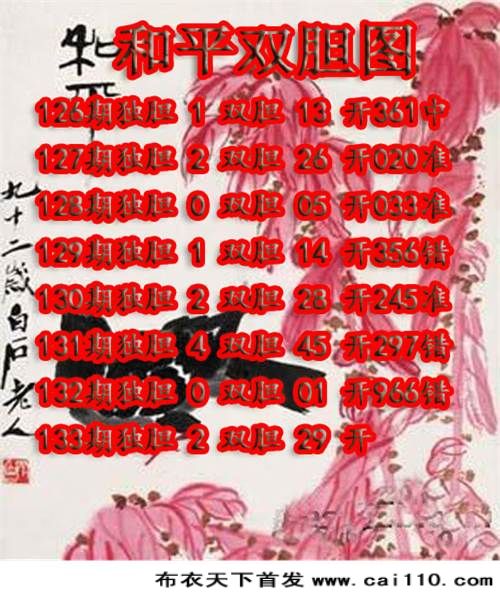 和平双胆图
126期独胆 1 双胆 13 开361中
127期独胆 2 双胆 26 开020准
128期独胆 0 双胆 05 开033准
129期独胆 1 双胆 14 开356错
130期独胆 2 双胆 28 开245准
131期独胆 4 双胆 45 开297错
132期独胆 0 双胆 01 开966错
133期独胆 2 双胆 29 开
九十二岁白石老人
布衣天下首发 www.cai110.com